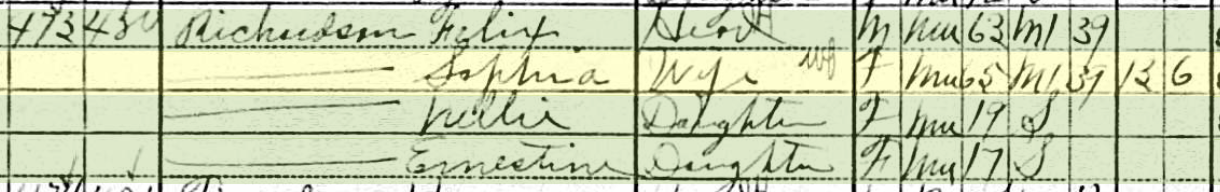 473 430 Richardson Felix Head M Mu 63 M1 39
Sophia Wife F Mu 65 M1 39 13 6
Nellie Daughter F Mu 19 S
Ernestine Daughter F Mu 17 S